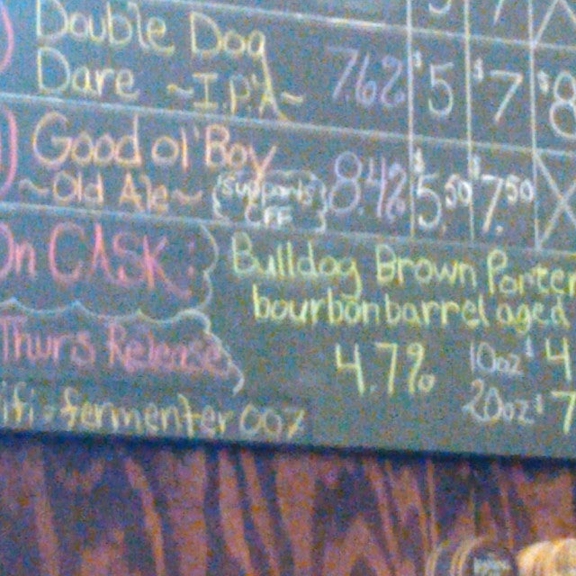 Double Dog
Dare ~I.P.A~ 7.6% $5 $7 $8
Good ol' Boy
~Old Ale~ (Supports CFF) 8.4% $5.50 $7.50 X
On CASK: Bulldog Brown Porter
bourbon barrel aged
Thurs Release 4.7% 10oz $4
20oz $7
ifi = fermenter007